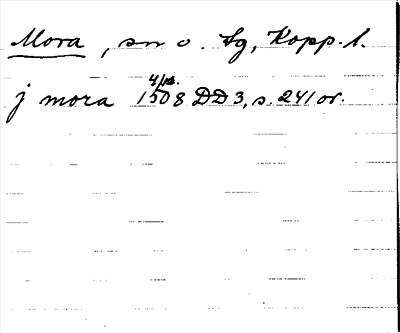 Mora, sn o. Sg, Kopp. l.
j mora 1508 4/12. DD 3, s. 241 or.